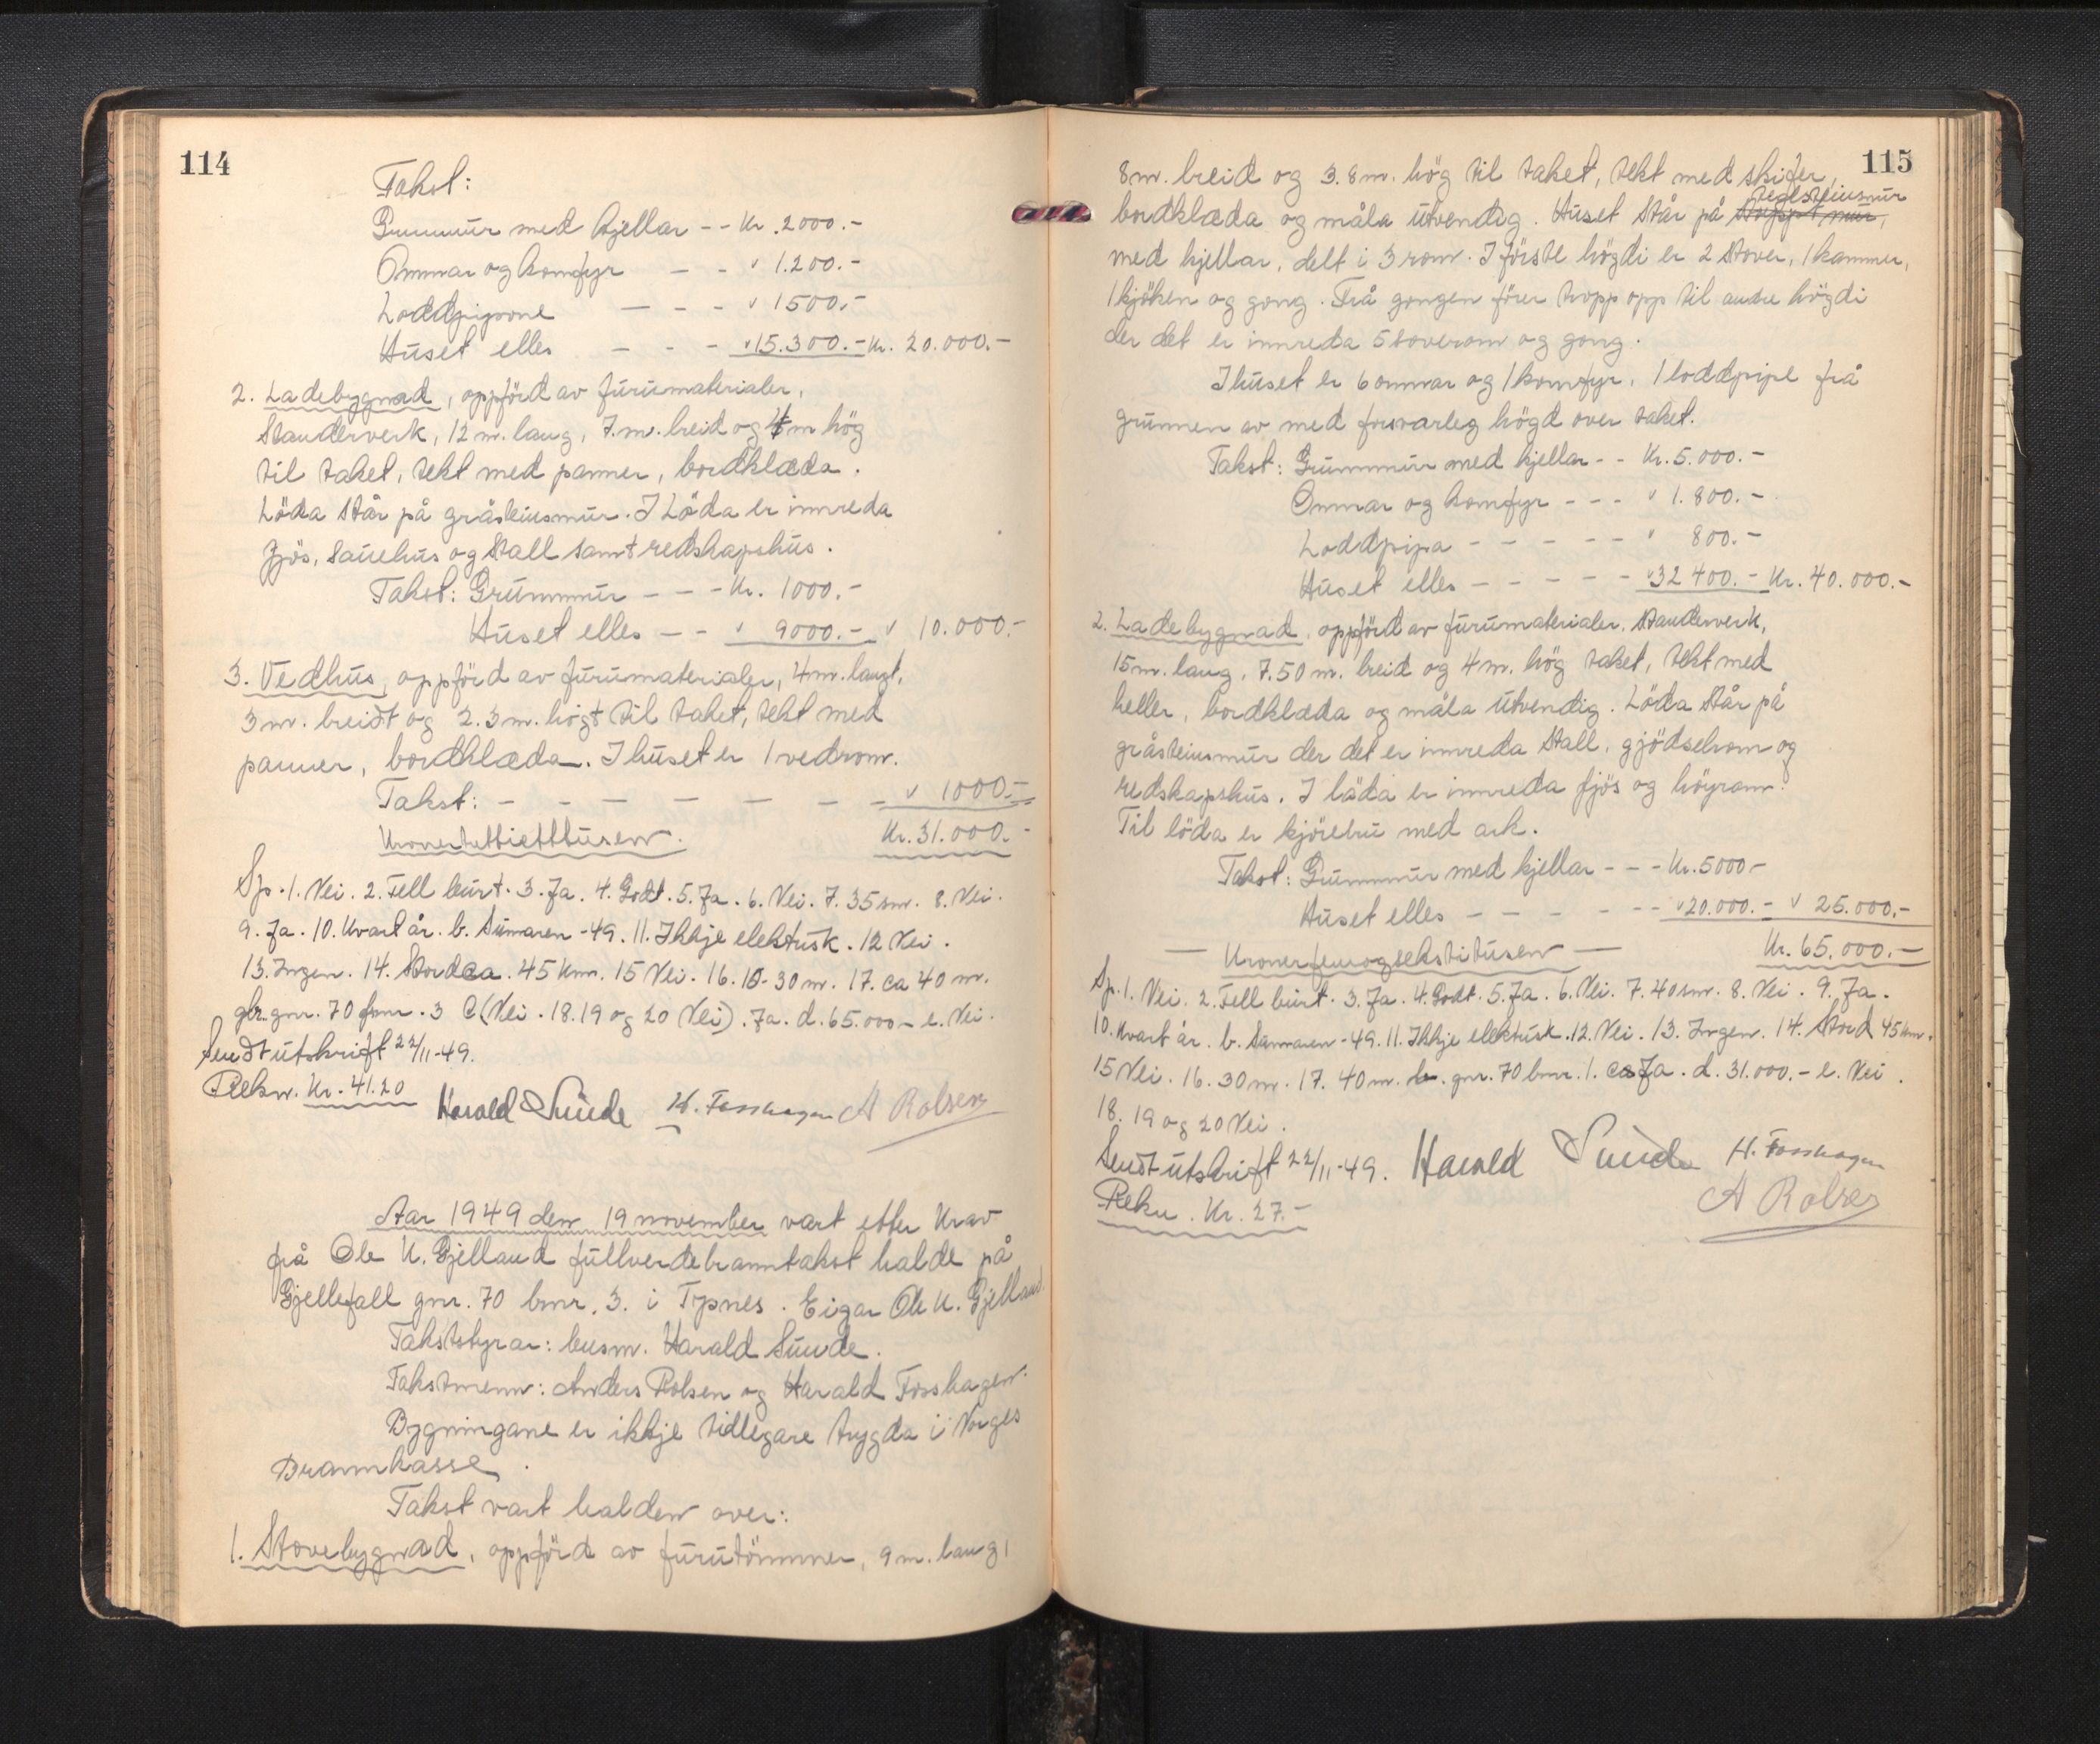 114
Takst:
Grunnmur med kjellar -- Kr. 2000.-
Omnar og komfyr - - " 1.200.-
Loddpipone - - - " 1500.-
Huset elles - - - " 15.300.- Kr. 20.000.-
2. Ladebygnad, oppförd av furumaterialer,
Standerverk, 12 m. lang, 7. m. breid og 4 m hög
til taket, tekt med panner, bordklæda.
Löda står på gråsteinsmur. I Löda er innreda
fjös, Sauehus og Stall samt redskapshus.
Takst: Grunnmur - - - Kr. 1000.-
Huset elles - - " 9000.- " 10.000.-
3. Vedhus, oppförd av furumaterialer, 4 m. langt,
3 m. breidt og 2.3 m. högt til taket, tekt med
panner, bordklæda. I huset er 1 vedrom.
Takst: - - - - - - - " 1000.-
Kronertrettieitttusen. Kr. 31.000.-
Sp. 1. Nei. 2. Fell burt. 3. Ja. 4. Godt. 5. Ja. 6. Nei. 7. 35 sm. 8. Nei.
9. Ja. 10. Kvart år. b. Sumaren -49. 11. Ikkje elektrisk. 12 Nei.
13. Ingen. 14. Stord ca. 45 km. 15 Nei. 16. 10-30 m. 17. ca 40 m.
gbr. gnr. 70 bnr. 3 C (Nei. 18. 19 og 20 Nei). Ja. d. 65.000 - e. Nei.
Sendt utskrift 22/11-49.
Rekn. Kr. 41.20 Harald Sunde H. Fosshagen A Rolsen
Aar 1949 den 19 november vart etter Krav
frå Ole K. Gjelland fullverdebranntakst halde på
Gjellefall gnr. 70 bnr. 3. i Typnes. Eigar Ole K. Gjelland
Takststyrar: lensm. Harald Sunde.
Takstmenn: Anders Rolsen og Harald Fosshagen.
Bygningane er ikkje tidlegare trygda i Norges
Brannkasse.
Takst vart halden over:
1. Stovebygnad, oppförd av furutömmer, 9 m. lang,
115
8 m. breid og 3.8 m. hög til taket, tekt med skifer,
teglsteinsmur
bordklæda og måla utvendig. Huset står på mur,
med kjellar, delt i 3 rom. I förste högdi er 2 stover, 1 kammer,
1 kjöken og gong. Frå gongen förer tropp opp til andre högdi
der det er innreda 5 soverom og gong.
I huset er 6 omnar og 1 komfyr, 1 loddpipe frå
grunnen av med forsvarleg högd over taket.
Takst: Grunnmur med kjellar - - Kr. 5.000.-
Omnar og komfyr - - - " 1.800.-
Loddpipa - - - - - " 800.-
Huset elles - - - - - " 32 400.- Kr. 40.000.-
2. Ladebygnad, oppförd av furumaterialer. Standerverk,
15 m. lang, 7.50 m. breid og 4 m. hög taket, tekt med
heller, bordklæda og måla utvendig. Löda står på
gråsteinsmur der det er innreda Stall, gjödselrom og
redskapshus. I löda er innreda fjös og höyrom.
Til löda er kjörebru med ark.
Takst: Grunnmur med kjellar - - - Kr. 5000 -
Huset elles - - - - - - " 20.000.- " 25.000.-
- Kronerfemogsekstitusen - Kr. 65.000.-
Sp. 1. Nei. 2. Fell burt. 3. Ja. 4. Godt. 5. Ja. 6. Nei. 7. 40 sm. 8. Nei. 9. Ja.
10. Kvart år. b. Sumaren -49. 11. Ikkje elektrisk. 12. Nei. 13. Ingen. 14. Stord 45 km.
15 Nei. 16. 30 m. 17. 40 m. gnr. 70 bnr. 1. c Ja. d. 31.000.- e. Nei.
18. 19 og 20 Nei.
Sendt utskrift 22/11-49. Harald Sunde H. Fosshagen
Rekn. Kr. 27.- A Rolsen